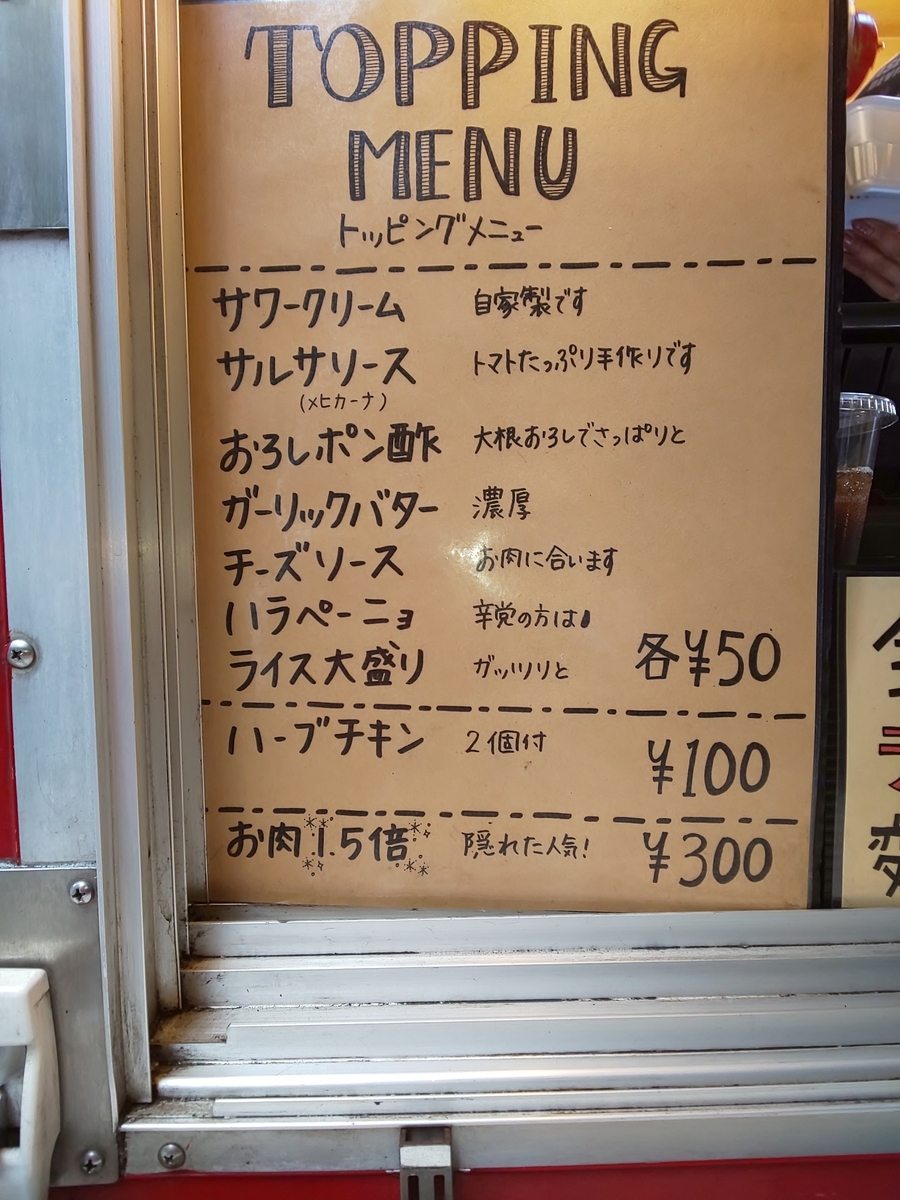 TOPPING
MENU
トッピングメニュー
サワークリーム 自家製です
サルサソース トマトたっぷり手作りです
(メヒカーナ)
おろしポン酢 大根おろしでさっぱりと
ガーリックバター 濃厚
チーズソース お肉に合います
ハラペーニョ 辛党の方は
ライス大盛り ガッツリと 各¥50
ハーブチキン 2個付 ¥100
お肉1.5倍 隠れた人気! ¥300